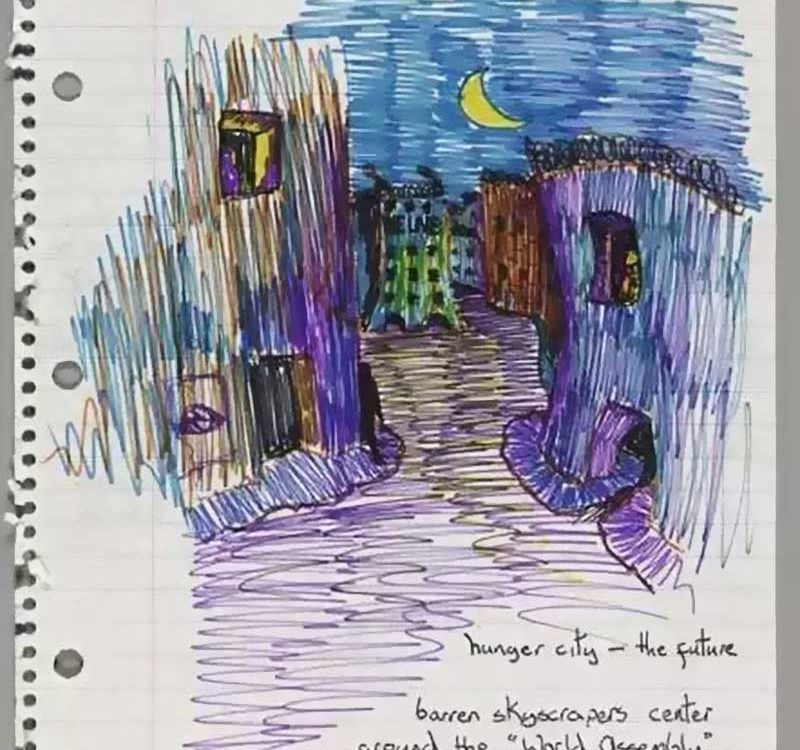 hunger city – the future
barren skyscrapers center
around the "World Assembly"